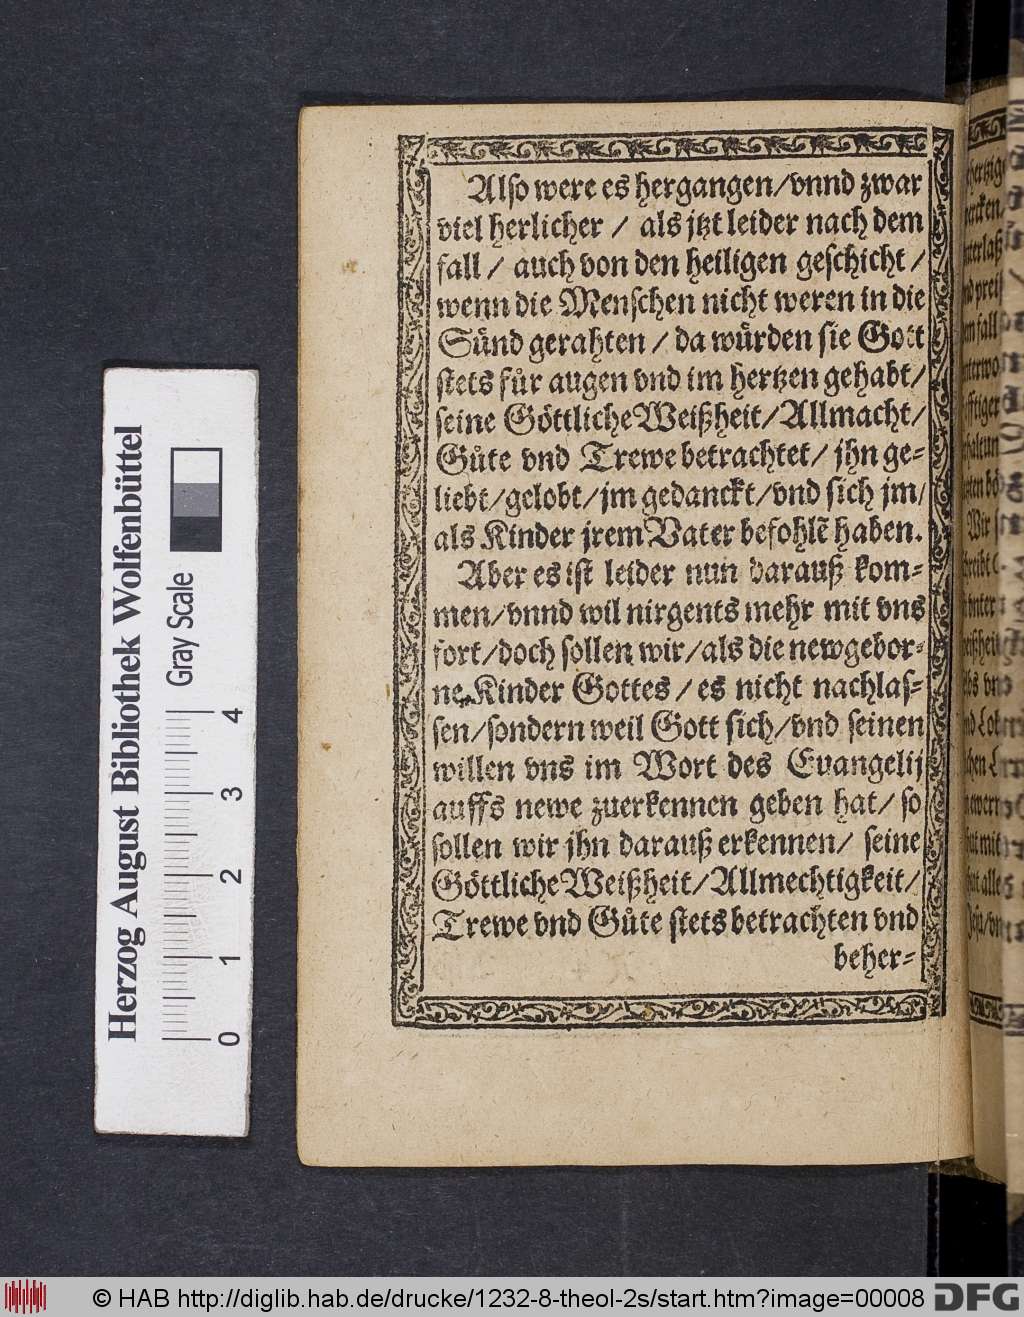 Also were es hergangen/vnnd zwar
viel herlicher / als jtzt leider nach dem
fall / auch von den heiligen geschicht /
wenn die Menschen nicht weren in die
Sünd gerahten / da würden sie Gott
stets für augen vnd im hertzen gehabt/
seine Göttliche Weißheit/Allmacht/
Güte vnd Trewe betrachtet/ jhn ge-
liebt/gelobt/jm gedanckt/vnd sich jm/
als Kinder jrem Vater befohlẽ haben.
Aber es ist leider nun darauß kom-
men/vnnd wil nirgents mehr mit vns
fort/doch sollen wir/als die newgebor-
ne Kinder Gottes / es nicht nachlas-
sen/sondern weil Gott sich/vnd seinen
willen vns im Wort des Evangelij
auffs newe zuerkennen geben hat/ so
sollen wir jhn darauß erkennen/ seine
Göttliche Weißheit/Allmechtigkeit/
Trewe vnd Güte stets betrachten vnd
beher-
Herzog August Bibliothek Wolfenbüttel
Gray Scale
0 1 2 3 4
© HAB http://diglib.hab.de/drucke/1232-8-theol-2s/start.htm?image=00008
DFG